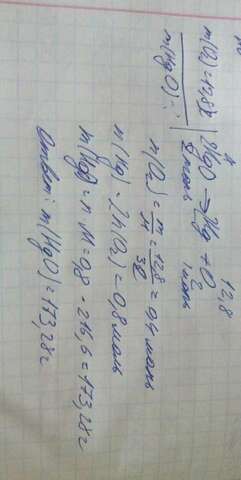 m(O₂)=12,8г | 2HgO → 2Hg + O₂
m(HgO) - ?
2моль 1моль
12,8
n(O₂) = m/M = 12,8/32 = 0,4 моль
n(Hg) = 2n(O₂) = 0,8 моль
m(HgO) = n · M = 0,8 · 216,6 = 173,28г
Ответ: m(HgO) = 173,28г